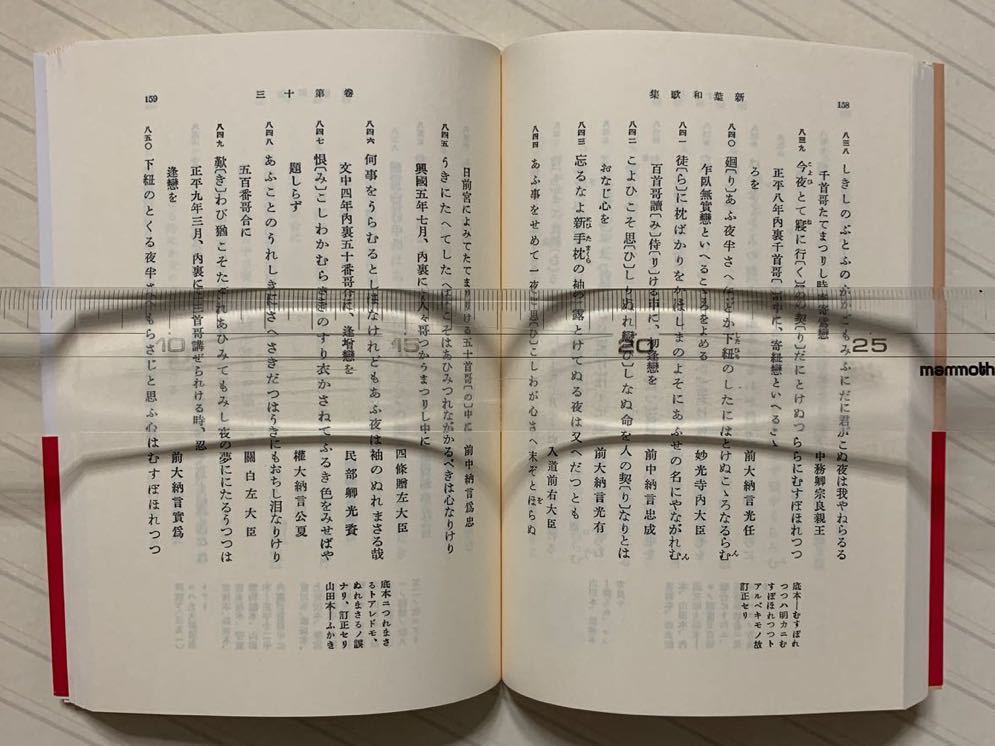 新葉和歌集
158
八三八 しきしのぶとふのすがごもみふにだに君がこぬ夜は我やねらるる
千首哥たてまつりし時、寄莚戀
中務卿宗良親王
八三九 今夜とて寢に行〔く〕水の契〔り〕だにとけぬつららにむすぼほれつつ
正平八年内裏千首哥〔の〕中に、寄紐戀といへるこゝ
ろを
前大納言光任
八四〇 廻〔り〕あふ夜半さへなどか下紐のしたにはとけぬこゝろなるらむ
乍臥無實戀といへることをよめる
妙光寺内大臣
八四一 徒〔ら〕に枕ばかりをなほしまのよそにあふせの名にやながれむ
百首哥讀〔み〕侍〔り〕ける中に、初逢戀を
前中納言忠成
八四二 こよひこそ思〔ひ〕しりぬれ戀〔ひ〕しなぬ命を人の契〔り〕なりとは
おなじ心を
前大納言光有
八四三 忘るなよ新手枕の袖の露とけてぬる夜は又へだつとも
入道前右大臣
八四四 あふ事をせめて一夜と思〔ひ〕こしわが心さへ末ぞとほらぬ
底本―むすぼれ
つつハ明カニむ
すぼほれつつト
アルベキモノ故
訂正セリ
卷第十三
159
日前宮によみてたてまりける五十首哥〔の〕中に
前中納言爲忠
八四五 うきにたへてしたへばこそはあひみつれながかるべきは心なりけり
興國五年七月、内裏にて人々哥つかうまつりし中に
四條贈左大臣
八四六 何事をうらむるとしはなけれどもあふ夜は袖のぬれまさる哉
文中四年内裏五十番哥合に、逢增戀を
民部卿光資
八四七 恨〔み〕こしわかむらさきのすり衣かさねてふるき色をみせばや
題しらず
權大納言公夏
八四八 あふことのうれしきにさへさきだつはうきにもおちし泪なりけり
五百番哥合に
關白左大臣
八四九 歎〔き〕わび猶こそたどれあひみてもみし夜の夢ににたるうつつは
正平九年三月、内裏にて三首哥講ぜられける時、忍
逢戀を
前大納言實爲
八五〇 下紐のとくる夜半さへもらさじと思ふ心はむすぼほれつつ
底本ニつれまさ
るトアレドモ、
ぬれまさるノ誤
ナリ、訂正セリ
山田本―ふかき
10 15 20 25
mammoth